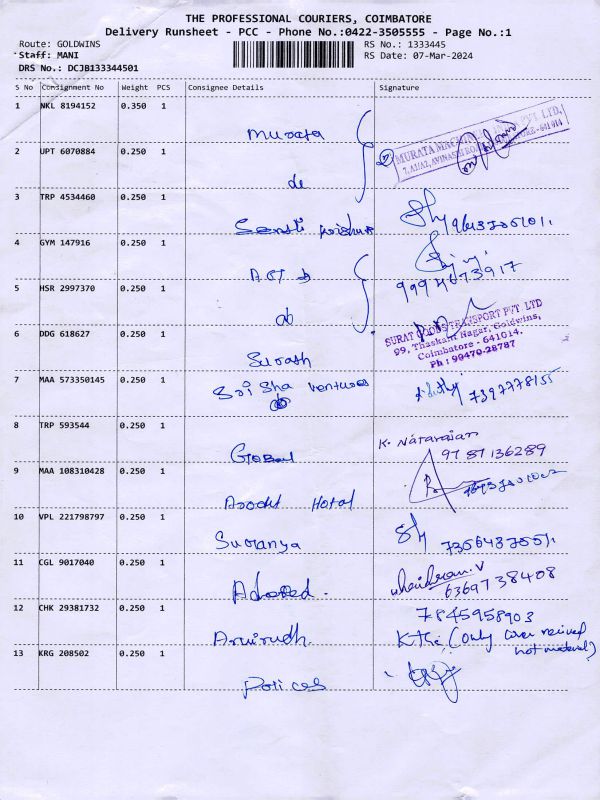 THE PROFESSIONAL COURIERS, COIMBATORE
Delivery Runsheet - PCC - Phone No.:0422-3505555 - Page No.:1
Route: GOLDWINS
RS No.: 1333445
Staff: MANI
RS Date: 07-Mar-2024
DRS No.: DCJB133344501
S No Consignment No Weight PCS Consignee Details Signature
1 NKL 8194152 0.350 1
Murata
MURATA MACHINERY PVT LTD,
2 UPT 6070884 0.250 1
do
3 TRP 4534460 0.250 1
4 GYM 147916 0.250 1
9994673917
5 HSR 2997370 0.250 1
do
SURAT GOODS TRANSPORT PVT LTD
99, Thaskani Nagar, Goldwins,
Coimbatore - 641014.
Ph : 90470-28787
6 DDG 618627 0.250 1
Surath
7 MAA 573350145 0.250 1
Sri Sha Ventures
7397778155
8 TRP 593544 0.250 1
K. Natarajan
97 87 136289
Global
9 MAA 108310428 0.250 1
Hotal
10 VPL 221798797 0.250 1
Suranya
11 CGL 9017040 0.250 1
6369738408
12 CHK 29381732 0.250 1
7845958903
Anirudh.
(only cover received
not material)
13 KRG 208502 0.250 1
Polices